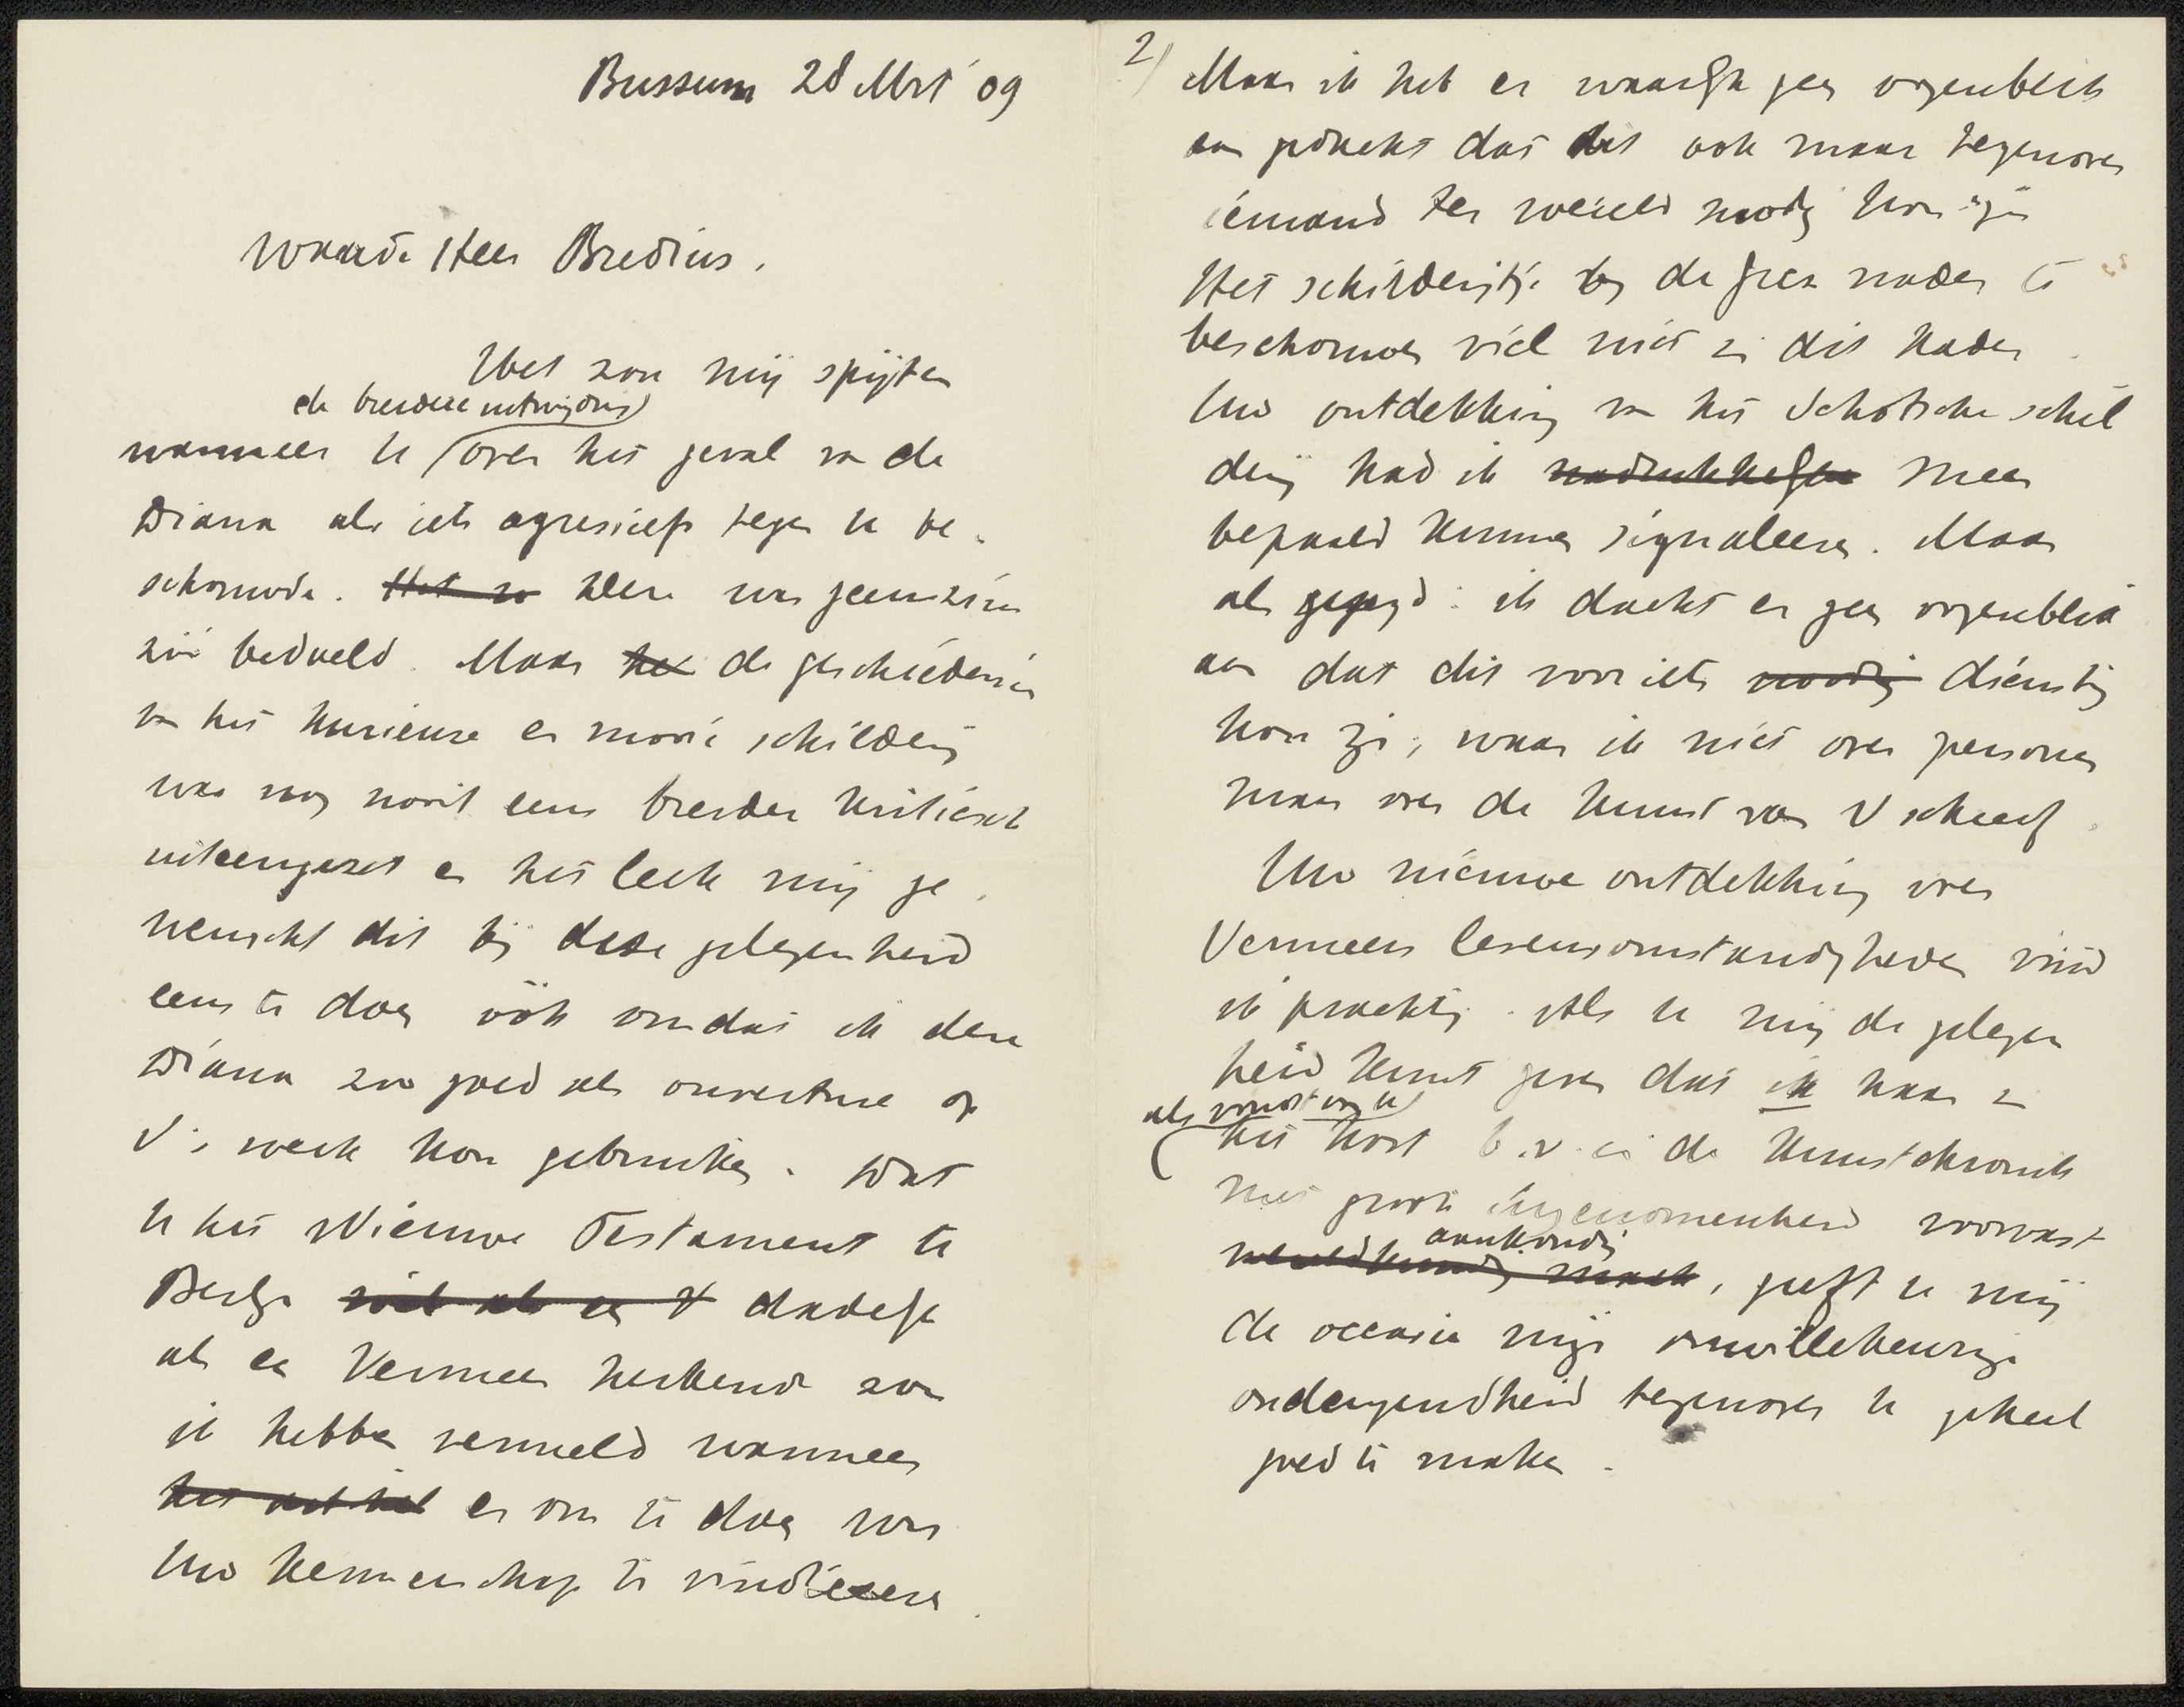 Bussum 28 Mrt '09
Waarde Heer Bredius.
Het zou mij spijten
de breedere uitwijding
wanneer U over het geval van de
Diana als iets agressiefs tegen U be-
schouwde. Het zo Deze was geenszins
zoo bedoeld. Maar het de geschiedenis
van het kurieuze en mooie schilderij
was nog nooit eens breeder kritiesch
uiteengezet en het leek mij ge-
wenscht dit bij deze gelegenheid
eens te doen óók omdat ik deze
Diana zoo goed als ouverture op
V's werk kon gebruiken. Dat
U het Nieuwe Testament te
Berlijn dadelijk
als een Vermeer herkende zou
ik hebben vermeld wanneer
er om te doen was
Uw kennerschap te vindiceeren.
2) Maar ik heb er waarlijk geen oogenblik
aan gedacht dat dit ook maar tegenover
iemand ter wereld noodig kon zijn
Het schilderijtje bij de freer nader te
beschouwen viel niet in dit kader.
Uw ontdekking van het Schotsche schil
derij had ik nadrukkelijker meer
bepaald kunnen signaleeren. Maar
als gezegd: ik dacht er geen oogenblik
aan dat dit voor iets noodig dienstig
kon zijn, waar ik niet over personen
maar over de kunst van V schreef.
Uw nieuwe ontdekking over
Vermeers levensomstandigheden vind
ik prachtig. Als U mij de gelegen
heid kunt geven dat ik haar in
als vondst van U
het kort b.v. in de Kunstchronik
met groote ingenomenheid voorvast
aankondig
wereldkundig maak, geeft U mij
de occasie mijn onwillekeurige
ondeugendheid tegenover U geheel
goed te maken.